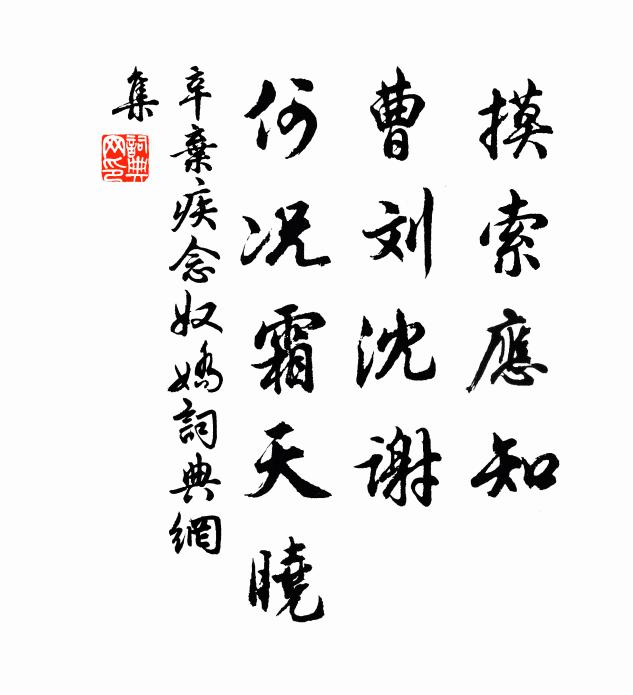 摸索應知
曹刘沈谢
何况霜天曉
辛棄疾念奴嬌詞典網
集
詞典
网印